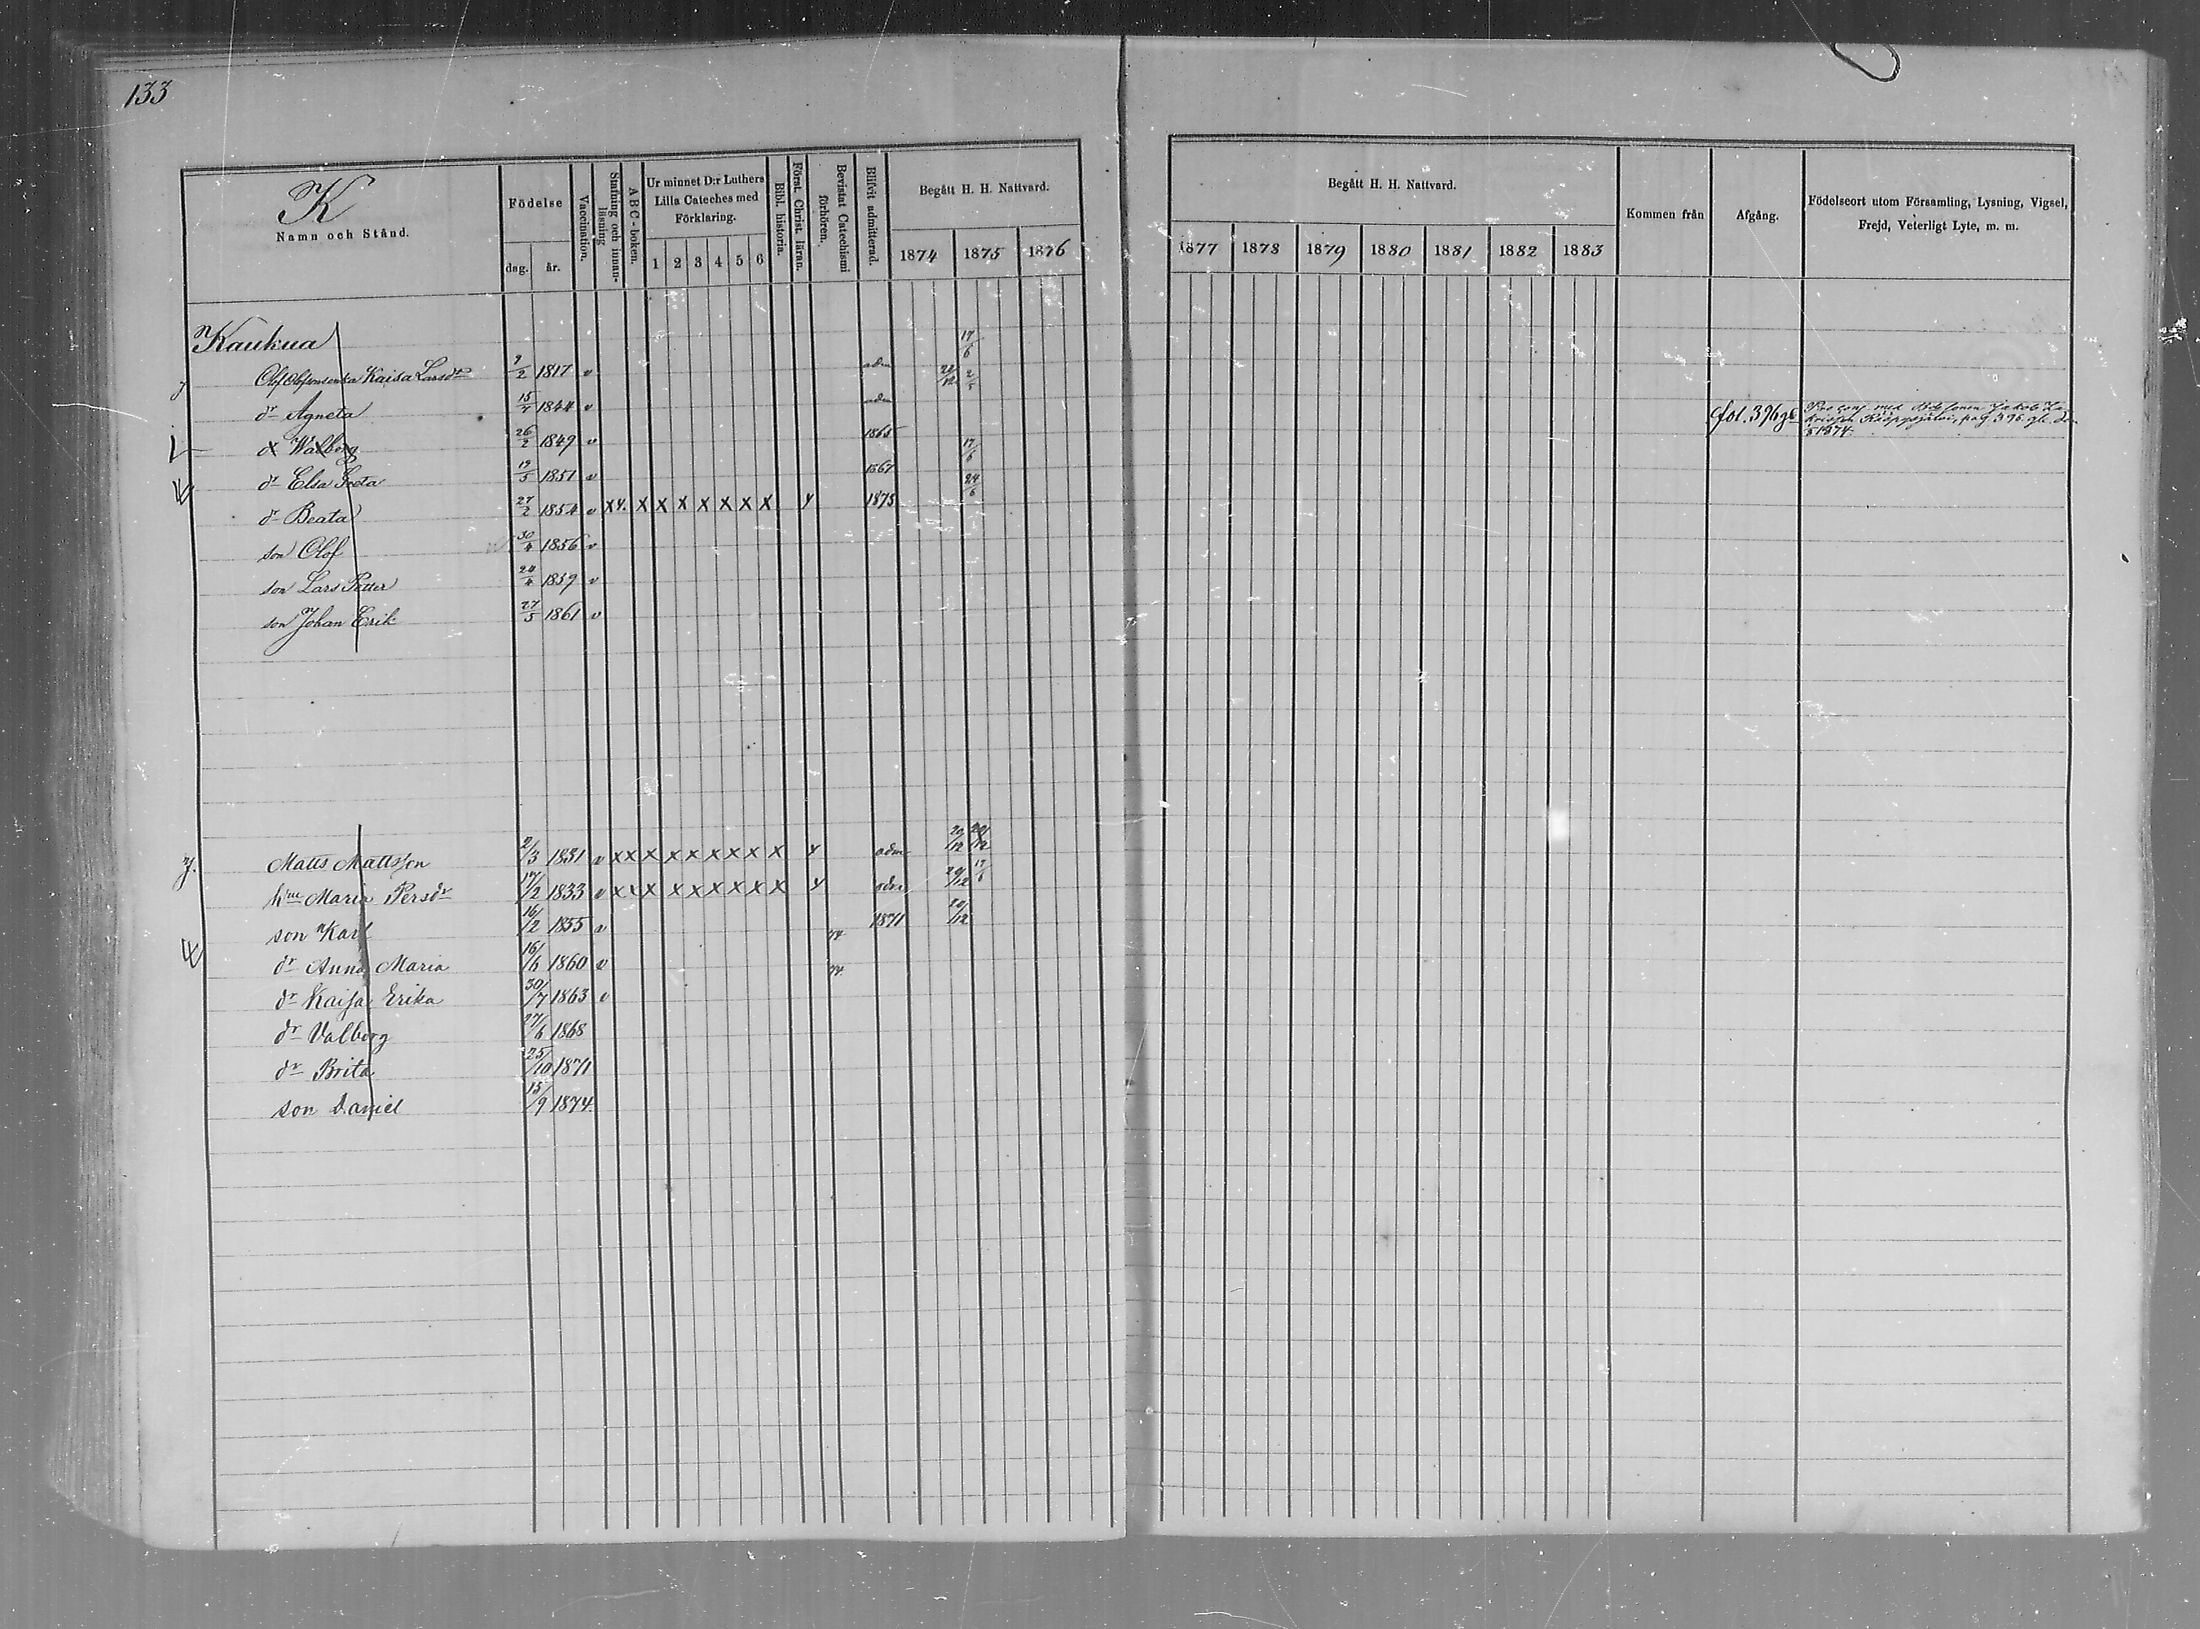 133
K
Namn och Stånd.
Födelse
dag. år.
Vaccination.
Stafning och innanläsning
A B C-boken.
Ur minnet D:r Luthers
Lilla Cateches med
Förklaring.
1 2 3 4 5 6
Bibl. historia.
Först. Christ. läran.
Bevistat Catechismi förhören.
Blifvit admitterad.
Begått H. H. Nattvard.
1874 1875 1876
Begått H. H. Nattvard.
1877 1878 1879 1880 1881 1882 1883
Kommen från
Afgång.
Födelseort utom Församling, Lysning, Vigsel,
Frejd, Veterligt Lyte, m. m.
Kaukua 17/6
Kaisa Larsdr 2 1817 v adm 2/5
dr Agneta 15 1844 v adm
Walborg 26/2 1849 v 1865 17/6
dr Elsa Greta 19/5 1851 v 1867 24/6
dr Beata 27/2 1854 v x x x x x x x 1875
son Olof 30/4 1856 v
son Lars Petter 4 1859 v
son Johan Erik 27/5 1861 v
fol. 396
med Jakob
pag. 396
1874.
Matts Mattsson 2/3 1831 v x x x x x x x x x adm 20/12
hm Maria Persdr 17/2 1833 v x x x x x x x x x adm 20/12 17/6
son Karl 16/2 1855 v 1871 20/12
dr Anna Maria 16/6 1860 v
dr Kaisa Erika 30/7 1863 v
dr Valborg 27/6 1868
dr Brita 25/10 1871
son Daniel 15/9 1874.